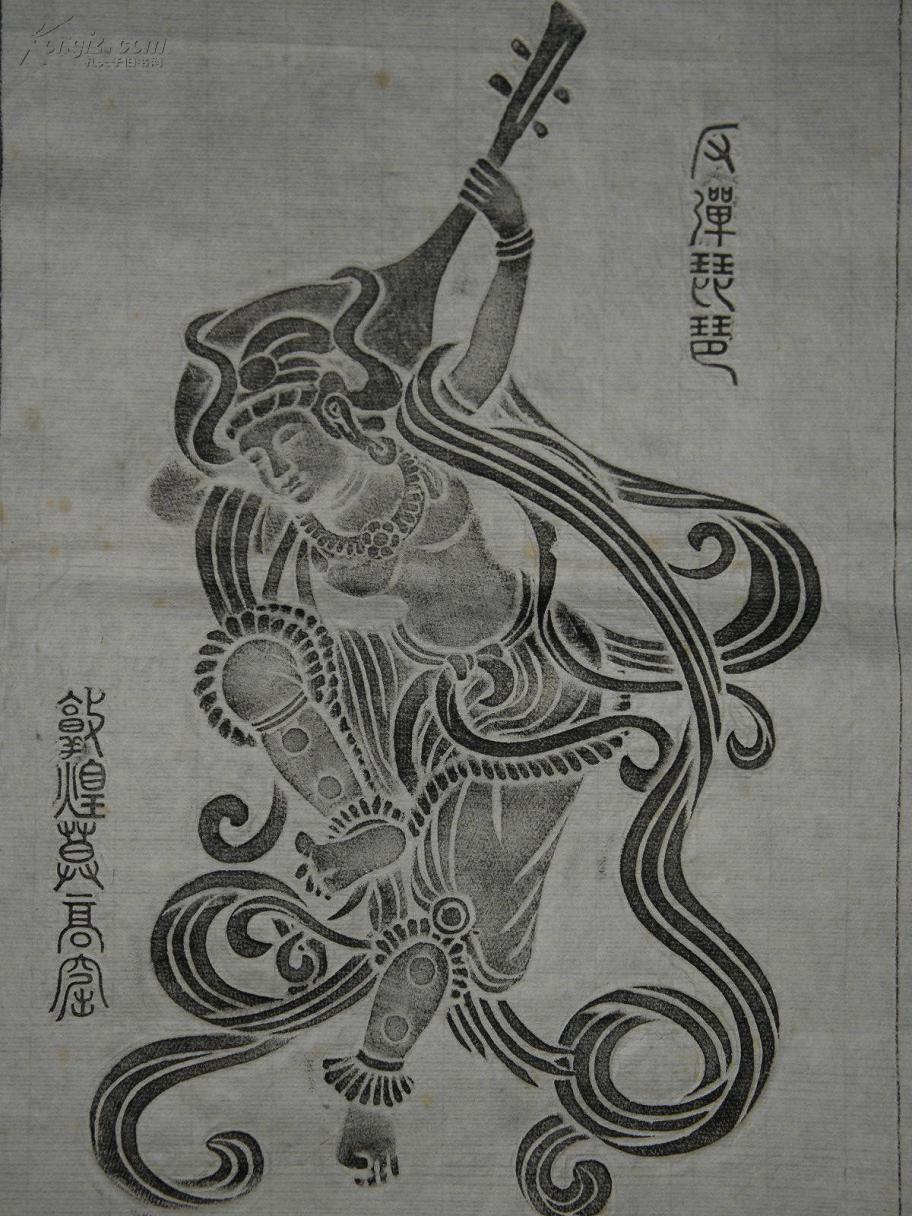 反彈琵琶
敦煌莫高窟
Kongfz.com
孔夫子旧书网